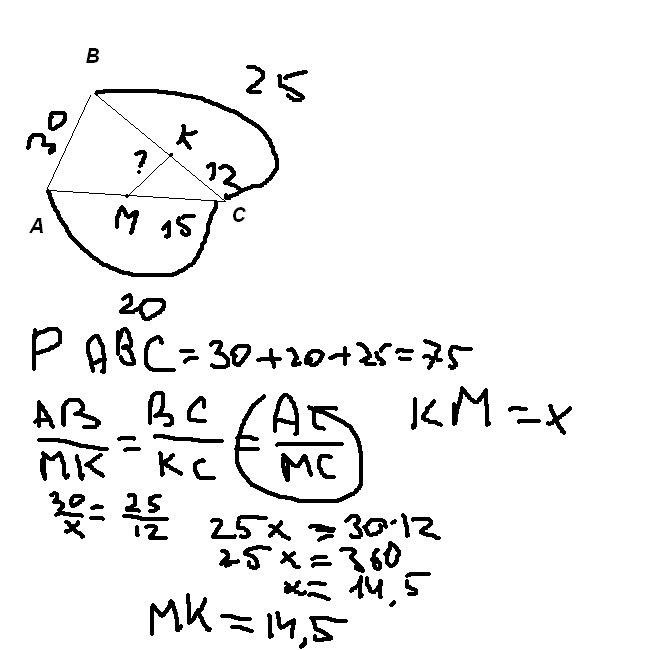 B
25
30
K
?
12
A
M
15
C
20
P ABC = 30+20+25=75
AB/MK = BC/KC = AC/MC
KM = x
30/x = 25/12
25x = 30·12
25x = 360
x = 14,5
MK = 14,5